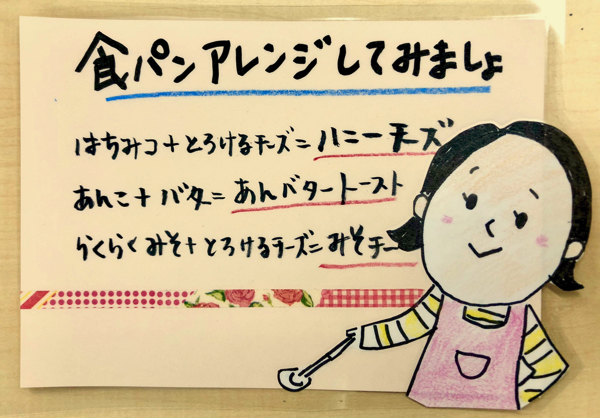 食パンアレンジしてみましょ
はちみつ+とろけるチーズ=ハニーチーズ
あんこ+バター=あんバタートースト
らくらくみそ+とろけるチーズ=みそチー